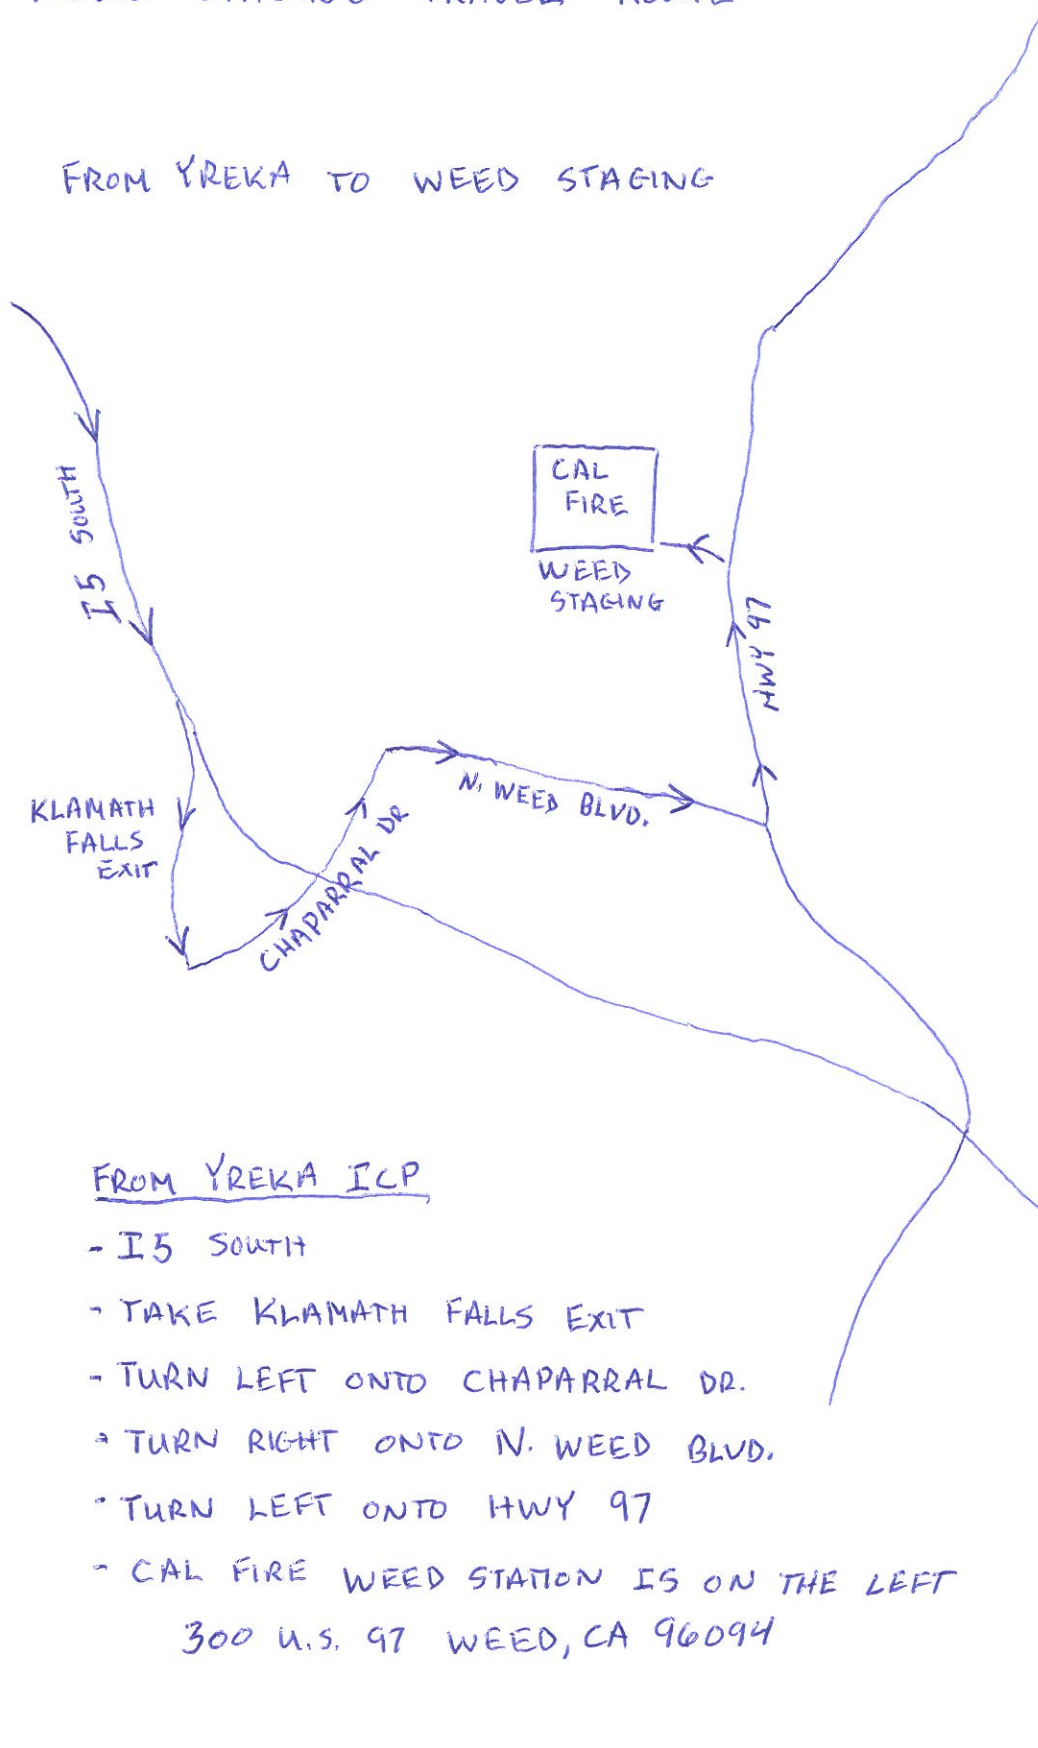 FROM YREKA TO WEED STAGING
I5 SOUTH
CAL
FIRE
WEED
STAGING
HWY 97
KLAMATH
FALLS
EXIT
CHAPARRAL DR
N. WEED BLVD.
FROM YREKA ICP
- I5 SOUTH
- TAKE KLAMATH FALLS EXIT
- TURN LEFT ONTO CHAPARRAL DR.
- TURN RIGHT ONTO N. WEED BLVD.
- TURN LEFT ONTO HWY 97
- CAL FIRE WEED STATION IS ON THE LEFT
300 U.S. 97 WEED, CA 96094